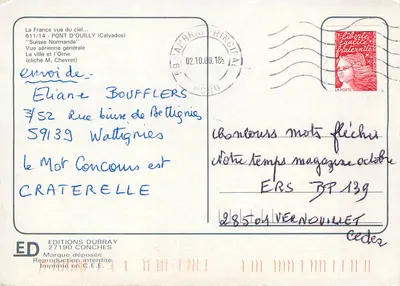 La France vue du ciel...
611/14 - PONT D'OUILLY (Calvados)
"Suisse Normande"
Vue aérienne générale
La ville et l'Orne
(cliché M. Chevret)
envoi de
Eliane BOUFFLERS
7/52 Rue
59139 Wattignies
le Mot Concours est
CRATERELLE
59
PRINCIPAL
02.10.00.18
liberté
égalité
fraternité
LA POSTE
Concours mots fléchés
Notre temps magazine octobre
ERS BP 139
28501 VERNOUILLET
Cedex
ED
EDITIONS DUBRAY
27190 CONCHES
Marque déposée
Reproduction interdite
Imprimé en C.E.E.